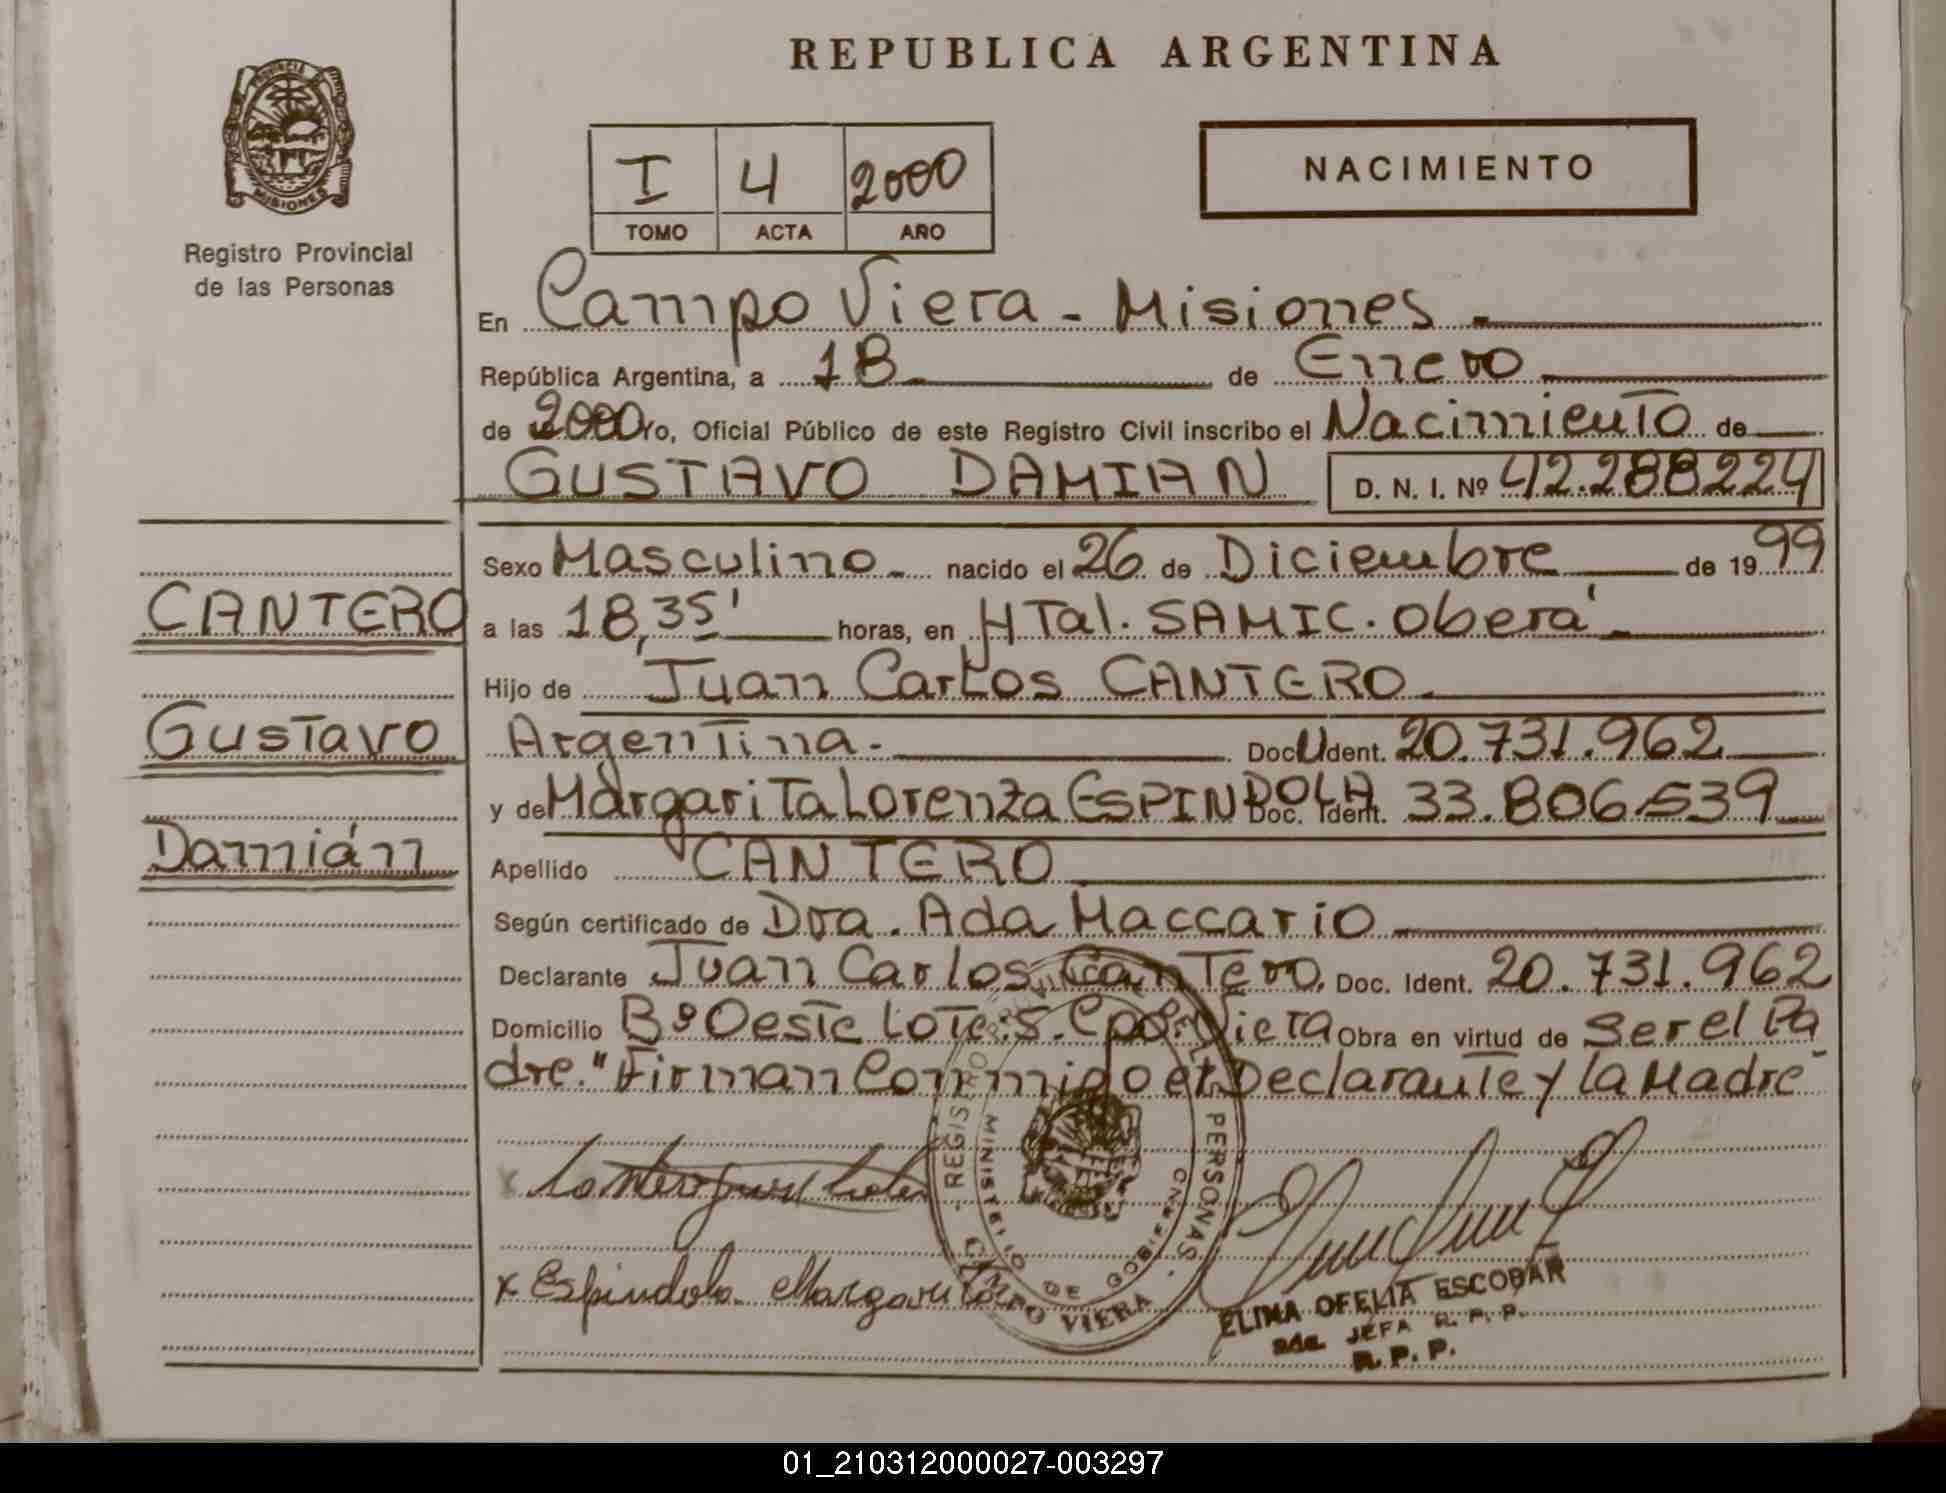 REPUBLICA ARGENTINA
PROVINCIA DE
MISIONES
Registro Provincial
de las Personas
I 4 2000
TOMO ACTA AÑO
NACIMIENTO
En Campo Viera - Misiones -
República Argentina, a 18 de Enero
de 2000 Yo, Oficial Público de este Registro Civil inscribo el Nacimiento de
GUSTAVO DAMIAN D. N. I. Nº 42.288224
Sexo Masculino nacido el 26 de Diciembre de 1999
CANTERO
a las 18,35' horas, en HTal. SAMIC. Oberá
Hijo de Juan Carlos CANTERO
Gustavo
Argentina. Doc U Ident. 20.731.962
y de Margarita Lorenza ESPINDOLA Doc. Ident. 33.806.539
Damián
Apellido CANTERO
Según certificado de Dra. Ada Maccario
Declarante Juan Carlos Cantero. Doc. Ident. 20.731.962
Domicilio Bº Oeste Lote: 5. Cpo. Viera Obra en virtud de Ser el Pa
dre." Firman Conmigo el Declarante y la Madre
REGISTRO PERSONAS
MINISTERIO DE GOBIERNO
CAMPO VIERA
x Espindola Margarita
ELIMA OFELIA ESCOBAR
2da. JEFA R. P. P.
R. P. P.
01_210312000027-003297